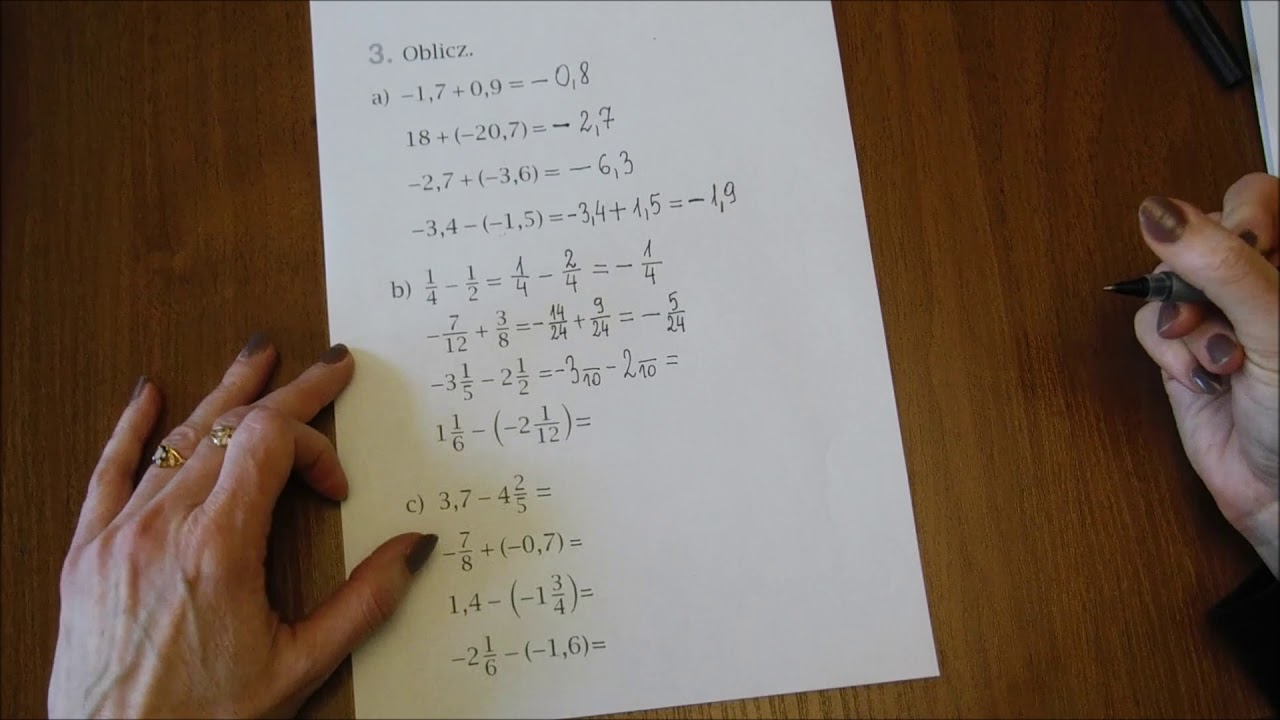 3. Oblicz.
a) −1,7 + 0,9 = − 0,8
18 + (−20,7) = − 2,7
−2,7 + (−3,6) = − 6,3
−3,4 − (−1,5) = -3,4 + 1,5 = − 1,9
b) 1/4 − 1/2 = 1/4 − 2/4 = − 1/4
−7/12 + 3/8 = -14/24 + 9/24 = − 5/24
−3 1/5 − 2 1/2 = -3 /10 - 2 /10 =
1 1/6 − (−2 1/12) =
c) 3,7 − 4 2/5 =
−7/8 + (−0,7) =
1,4 − (−1 3/4) =
−2 1/6 − (−1,6) =